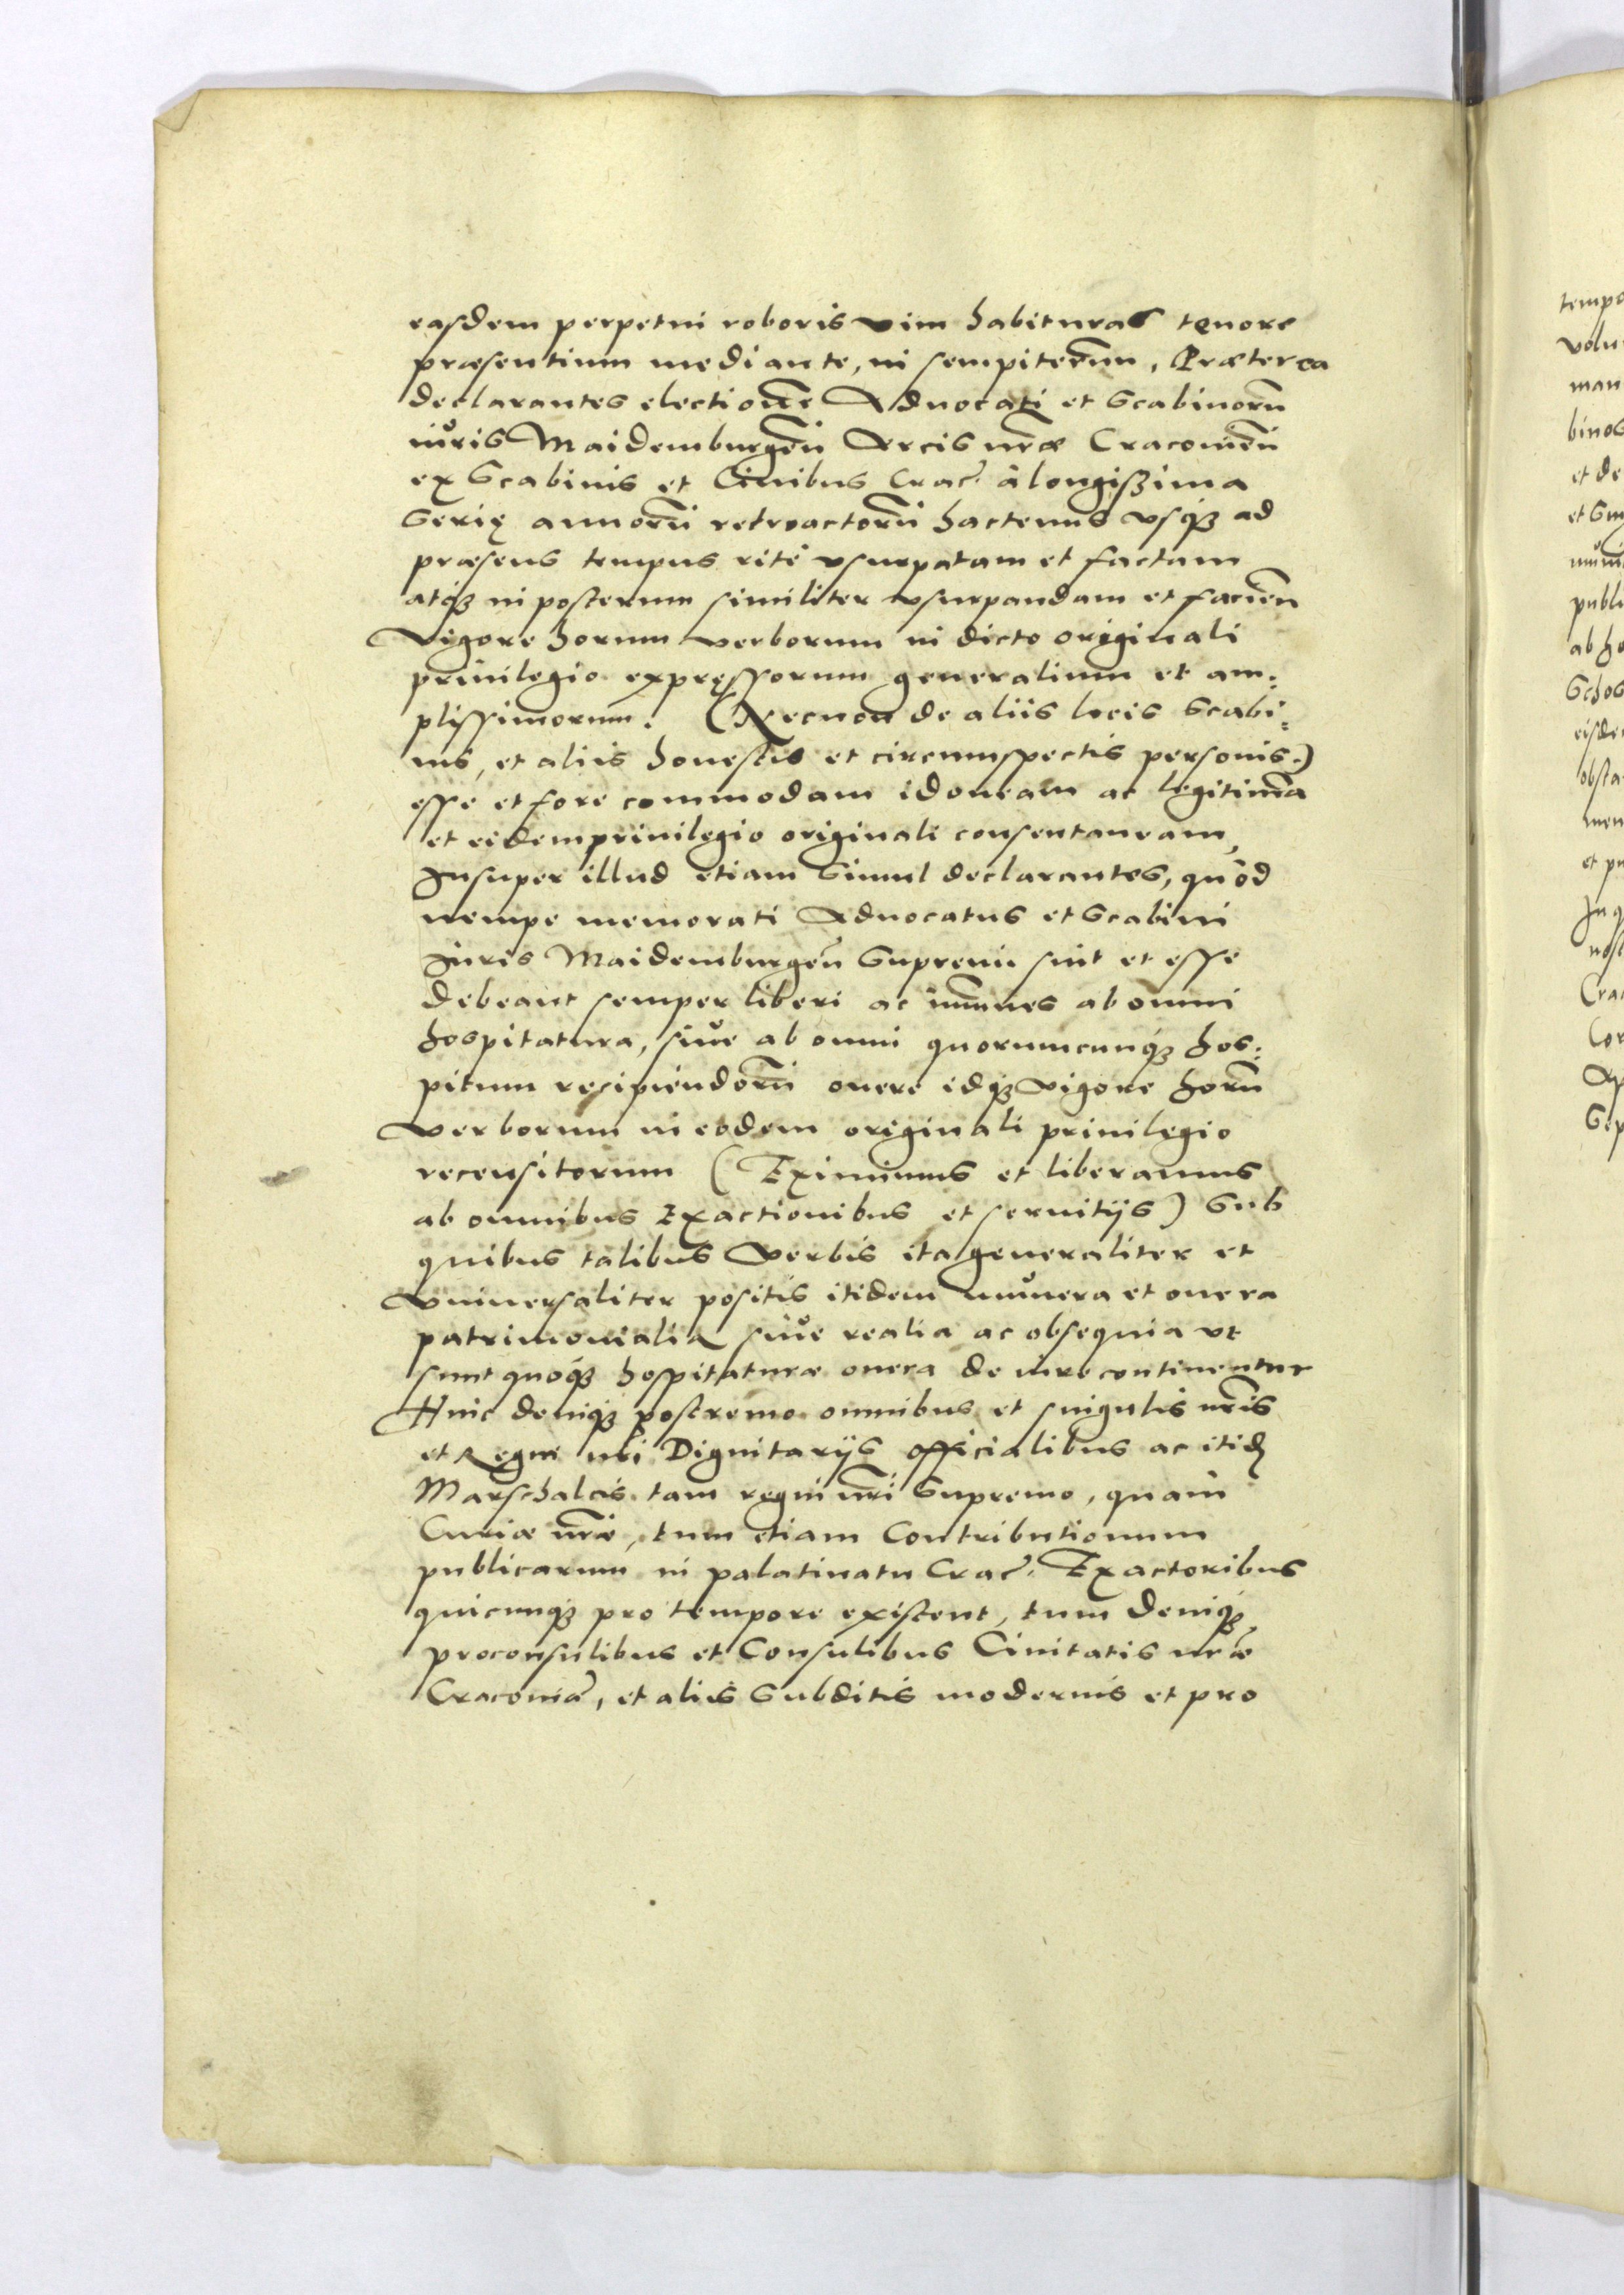 easdem perpetui roboris vim habituras tenore
præsentium mediante, in sempiternũ, Præterea
declarantes electionẽ Aduocati et Scabinorũ
iuris Maidemburgeñ Arcis nr̃æ Cracouieñ
ex Scabinis et Ciuibus Crac̃. à longißima
Serię annorũ retroactorũ hactenus vsq3 ad
præsens tempus ritè vsurpatam et factam
atq3 in posterum similiter vsurpandam et facieñ
Vigore horum verborum in dicto originali
priuilegio expręssorum generalium et am:
plissimorum. (Necnon de aliis locis Scabi:
nis, et aliis honestis et circumspectis personis.)
esse et fore commodam idoneam ac legitimã
et eidem priuilegio originali consentaneam,
Insuper illud etiam Simul declarantes, quòd
nempe memorati Aduocatus et Scabini
Iuris Maidemburgeñ Supremi sint et esse
debeant semper liberi ac im̃unes ab omni
hospitatura, siue ab omni quorumcunq3 hos:
pitum recipiendorũ onere idq3 vigore horũ
verborum in eodem originali priuilegio
recensitorum (Eximimus et liberamus
ab omnibus Exactionibus et seruitijs) Sub
quibus talibus Verbis ita generaliter et
vniuersaliter positis itidem munera et onera
patrimonialia siue realia ac obsequia vt
sunt quoq3 hospitaturæ onera de iure continentur
Huic deniq3 postremo omnibus et singulis nr̃is
et Regni nr̃i Dignitarijs officialibus ac itid
Marschalcis tam regni nr̃i Supremo, quàm
Curiæ nr̃æ, tum etiam Contributionum
publicarum in palatinatu Crac̃. Exactoribus
quicunq3 pro tempore existent, tum deniq3
proconsulibus et Consulibus Ciuitatis nr̃æ
Cracouiẽ, et aliis Subditis modernis et pro